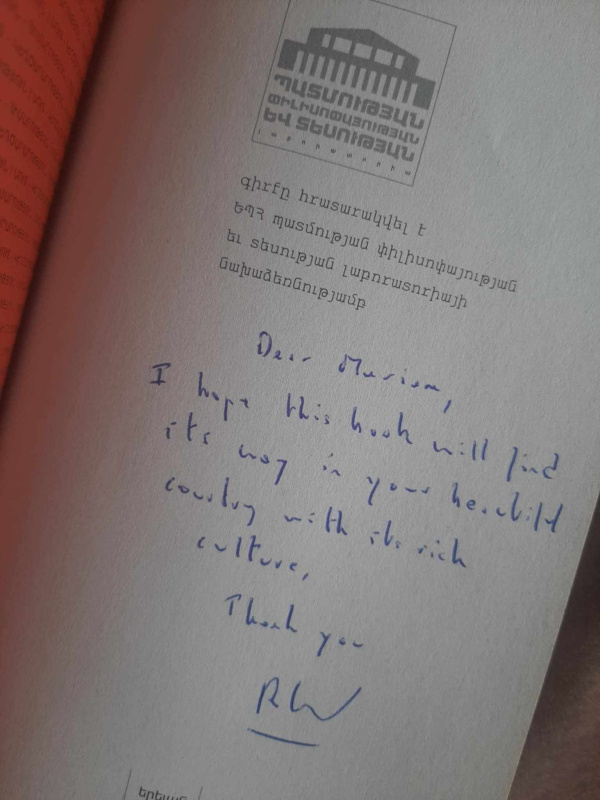 ՊԱՏՄՈՒԹՅԱՆ
ՓԻԼԻՍՈՓԱՅՈՒԹՅԱՆ
ԵՎ ՏԵՍՈՒԹՅԱՆ
լաբորատորիա
Գիրքը հրատարակվել է
ԵՊՀ պատմության փիլիսոփայության
եւ տեսության լաբորատորիայի
նախաձեռնությամբ
Dear Mariam,
I hope this book will find
its way in your beautiful
country with its rich
culture,
Thank you
RW
Երեւան